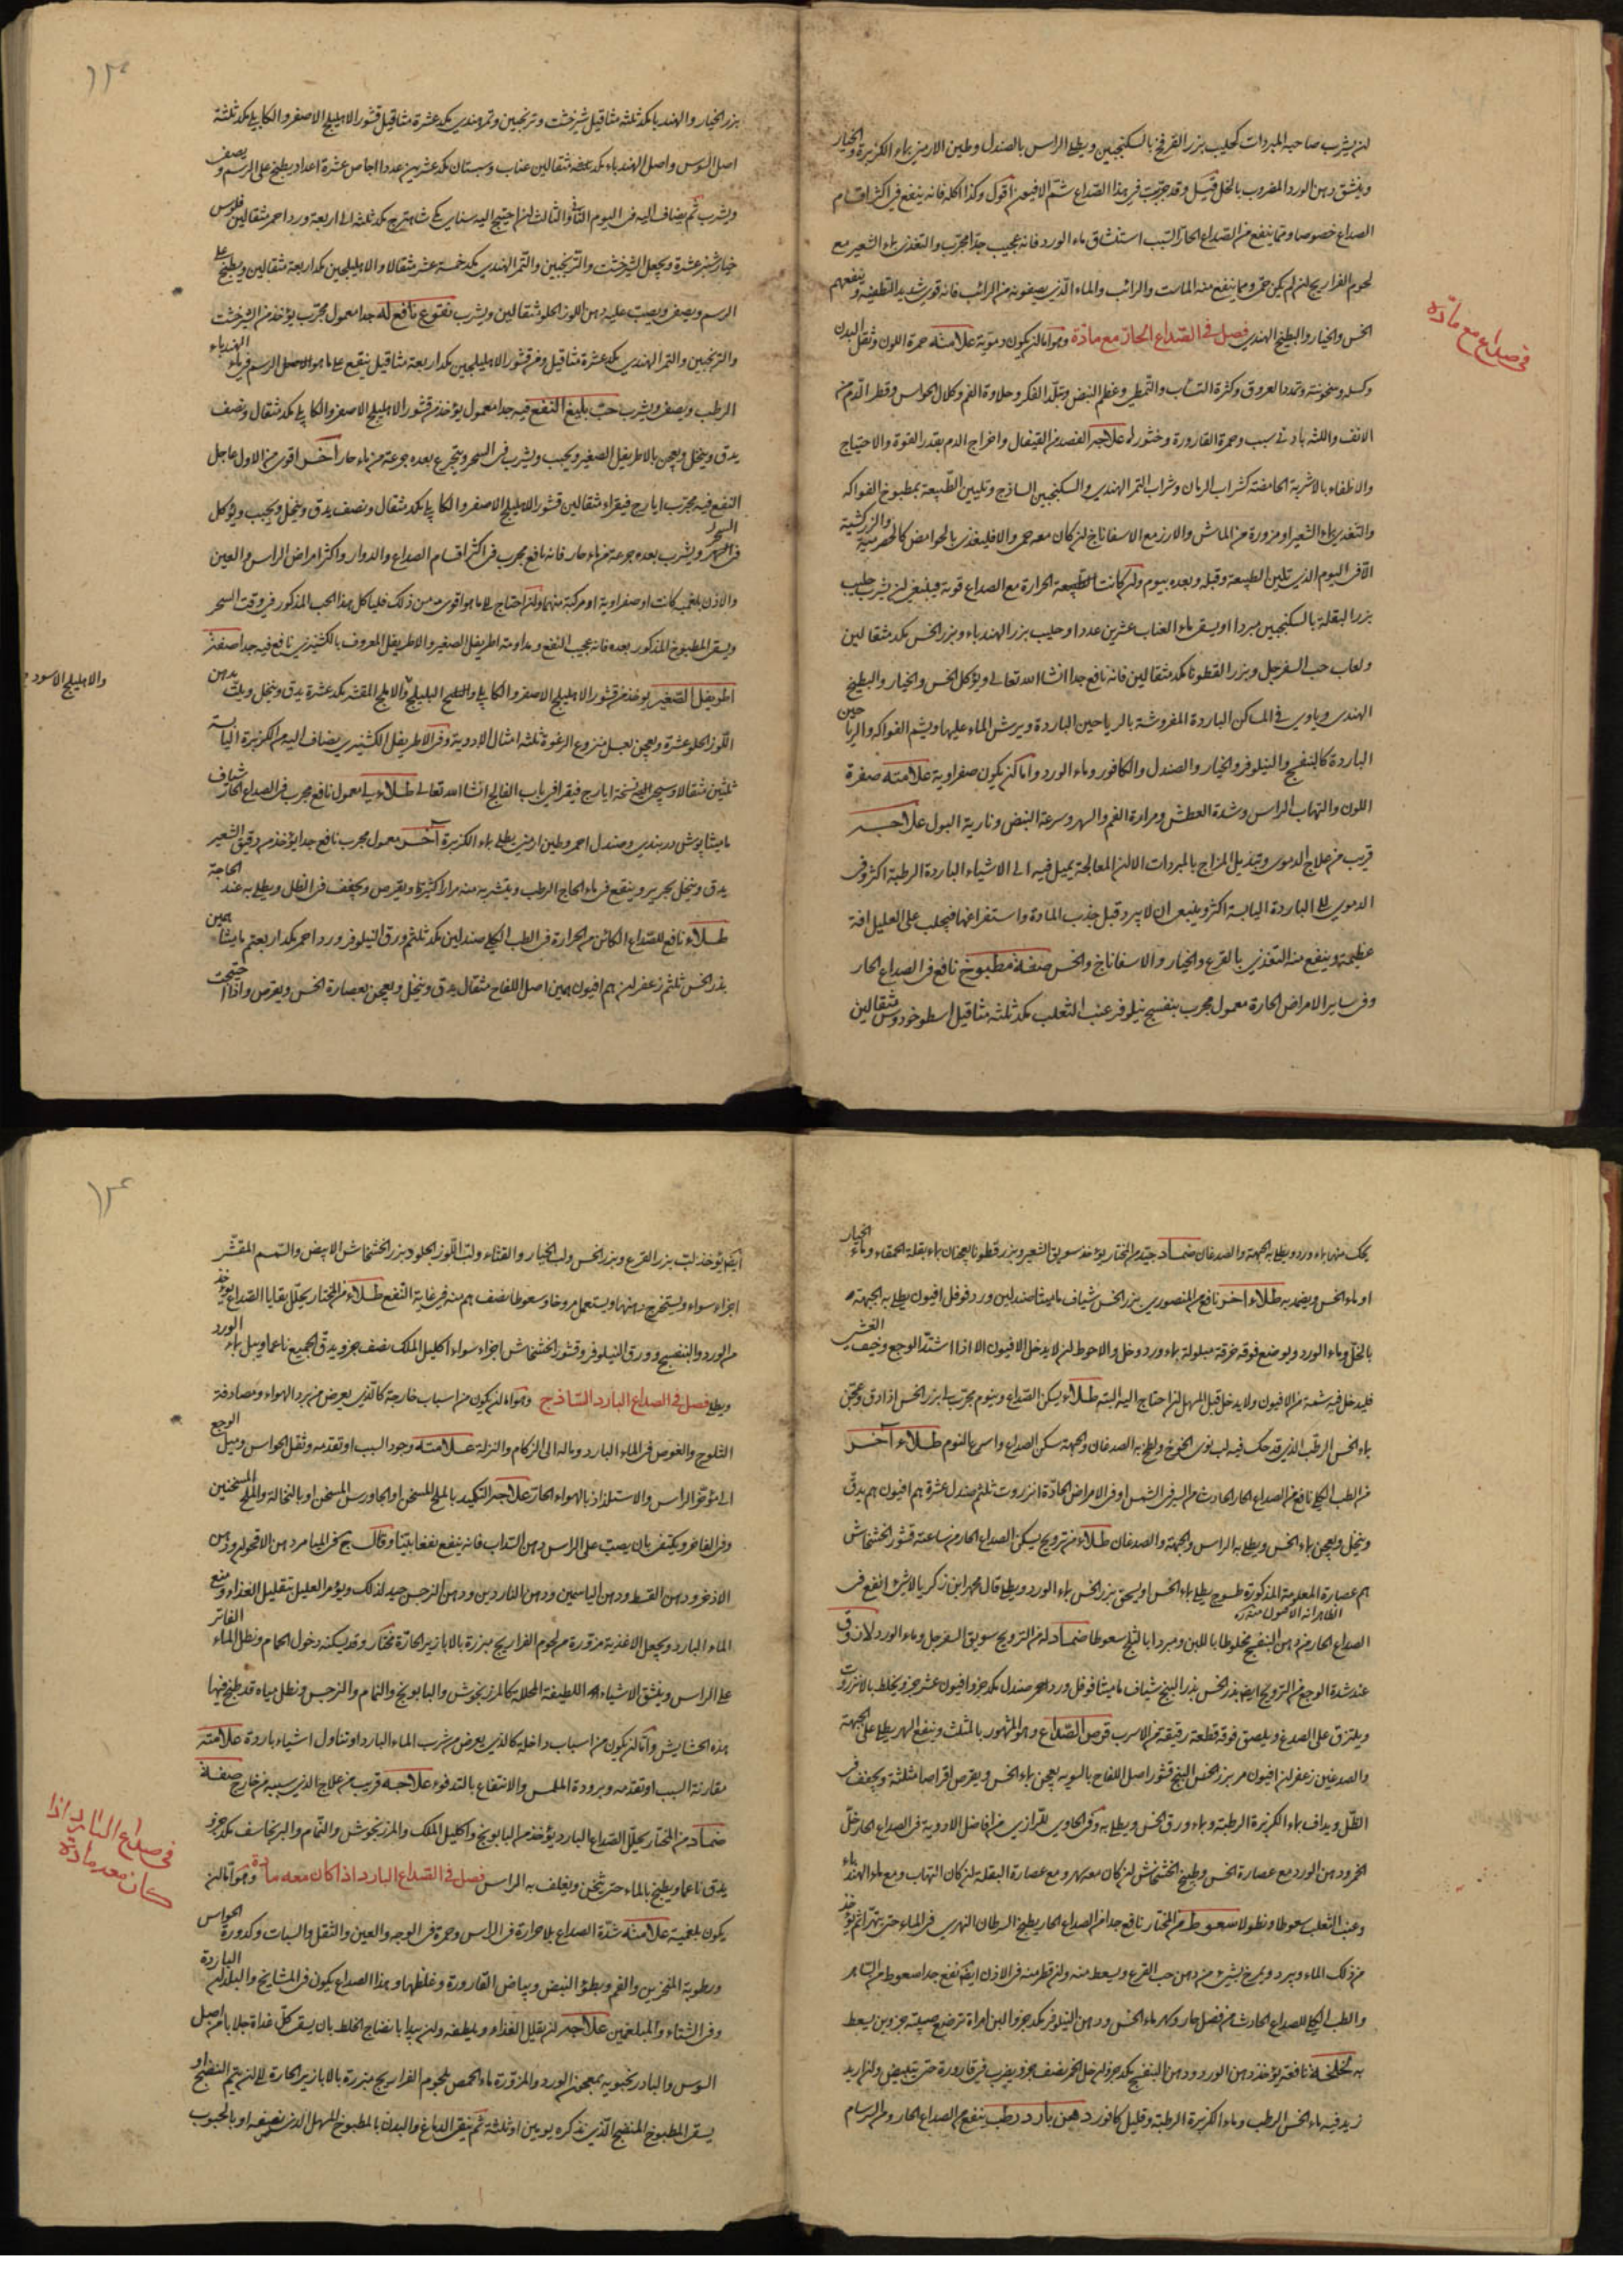 لن يشرب صاحبه المبردات كحليب بزر القرع بالسكنجبين ويطلى الراس بالصندل وطين الارمني بماء الكزبرة والخيار
وينشق دهن الورد المضروب بالخل قيل وقد جربت في هذا الصداع شم الافيون اقول وكذا اكله فانه ينفع في اكثر اقسام
الصداع خصوصا ومما ينفع من الصداع الحار السبب استنشاق ماء الورد فانه عجيب جدا مجرب والتغذي بماء الشعير مع
لحوم الفراريج لن لم يكن حمى ومما ينفع منه الماست والرائب والماء الذي يصفونه من الرائب فانه قوي شديد التطفية وينفعهم
الخس والخيار والبطيخ الهندي فصل في الصداع الحار مع مادة وهو اما لن يكون دموية علامته حمرة اللون وثقل البدن
وكسل وسخونة وتمدد العروق وكثرة التثاب والتمطي وعظم النبض وتبلد الفكر وحلاوة الفم وكلال الحواس وقطر الدم من
الانف واللثه بادنى سبب وحمرة القارورة وخثوره علاجه الفصد من القيفال واخراج الدم بقدر القوة والاحتياج
والاطفاء بالاشربة الحامضة كشراب الرمان وشراب التمر الهندي والسكنجبين الساذج وتليين الطبيعة بمطبوخ الفواكه
والتغذي بماء الشعير او مزورة من الماش والارز مع الاسفاناخ لن كان معه حمى والا فليغذى بالحوامض كالحصرمية والزرشكية
الا في اليوم الذي تلين الطبيعة وقبله وبعده بيوم ولن كانت الحرارة مع الصداع قوية فينبغي لن يشرب حليب
بزر البقلة بالسكنجبين مبردا او يسقى ماء العناب عشرين عددا وحليب بزر الهندباء وبزر الخس مكد مثقالين
ولعاب حب السفرجل وبزر القطونا مكد مثقالين فانه نافع جدا انشا الله تعالى ويؤكل الخس والخيار والبطيخ
الهندي وياوي في المساكن الباردة المفروشة بالرياحين الباردة ويرش الماء عليها ويشم الفواكه والرياحين
الباردة كالبنفسج والنيلوفر والخيار والصندل والكافور وماء الورد واما لن يكون صفراوية علامته صفرة
اللون والتهاب الراس وشدة العطش ومرارة الفم والسهر وسرعة النبض ونارية البول علاجه
قريب من علاج الدموي وتبديل المزاج بالمبردات الا لن المعالجة يميل فيه الى الاشياء الباردة الرطبة اكثر وفي
الدموي الى الباردة اليابسة اكثر وينبغي ان لا يبرد قبل جذب المادة واستفراغها فيجلب على العليل افة
عظيمة وينفع منه التغذي بالقرع والخيار والاسفاناخ والخس صفة مطبوخ نافع في الصداع الحار
وفي ساير الامراض الحارة معمول مجرب بنفسج نيلوفر عنب الثعلب مكد ثلثة مثاقيل اسطوخودوس مثقالين
في صداع مع مادة
بزر الخيار والهندبا مكد ثلثة مثاقيل شيرخشت وترنجبين وتمر هندي مكد عشرة مثاقيل قشور الاهليلج الاصفر والكابلي مكد ثلثة
اصل السوس واصل الهندباء مكد مثقالين عناب وسبستان مكد عشرين عددا اجاص عشرة اعداد يطبخ على الرسم ويصفى
ويشرب ثم يضاف اليه في اليوم الثاني والثالث لن احتيج اليه سنا مكي شاهترج مكد ثلثة الى اربعة ورد احمر مثقالين فلوس
خيارشنبر عشرة ويجعل الشيرخشت والترنجبين والتمر الهندي مكد خمسة عشر مثقالا والاهليلجين مكد اربعة مثقالين ويطبخ على
الرسم ويصفى ويصب عليه دهن اللوز الحلو مثقالين ويشرب نقوع نافع له جدا معمول مجرب يؤخذ من الشيرخشت
والترنجبين والتمر الهندي مكد عشرة مثاقيل ومن قشور الاهليلجين مكد اربعة مثاقيل ينقع على ما هو الرسم في ماء الهندباء
الرطب ويصفى ويشرب حب بليغ النفع فيه جدا معمول يؤخذ من قشور الاهليلج الاصفر والكابلي مكد مثقال ونصف
يدق وينخل ويعجن بالاطريفل الصغير ويحبب ويشرب في السحر ويتجرع بعده جرعة من ماء حار اخر اقوى من الاول عاجل
النفع فيه مجرب ايارج فيقراء مثقالين قشور الاهليلج الاصفر والكابلي مكد مثقال ونصف يدق وينخل ويحبب ويؤكل
في السحر ويشرب بعده جرعة من ماء حار فانه نافع مجرب في اكثر اقسام الصداع والدوار واكثر امراض الراس والعين
والاذن بلغمية كانت او صفراوية او مركبة منهما ولن احتاج الى ما هو اقوى من ذلك فلياكل هذا الحب المذكور في وقت السحر
ويسقى المطبوخ المذكور بعده فانه عجيب النفع ومداومة اطريفل الصغير والاطريفل المعروف بالكشنيزي نافع فيه جدا صفة
اطريفل الصغير يؤخذ من قشور الاهليلج الاصفر والكابلي والبليلج والاملج المقشر مكد عشرة يدق وينخل ويلت بدهن
اللوز الحلو عشرة ويعجن بعسل منزوع الرغوة ثلثة امثال الادوية وفي الاطريفل الكشنيزي يضاف اليه من الكزبرة اليابسة
ثلثين مثقالا وسيجئ نسخة ايارج فيقرا في باب الفالج انشا الله تعالى طلاء لي معمول نافع مجرب في الصداع الحار شياف
ماميثا بوش دربندي وصندل احمر وطين ارمني يطلى بماء الكزبرة اخر معمول مجرب نافع جدا يؤخذ من دقيق الشعير
يدق وينخل بحرير وينقع في ماء الرطب ويتشربه منه مرارا كثيرة ويقرص ويجفف في الظل ويطلى به عند الحاجة
طلاء نافع للصداع الكائن من الحرارة في الطب الكلي صندلين مكد ثلثة ورق النيلوفر ورد احمر مكد اربعة ماميثا
بذر الخس ثلثة زعفران افيون اصل اللفاح مثقال يدق وينخل ويعجن بعصارة الخس ويقرص واذا احتيجت
والاهليلج الاسود
يحك منها بماء ورد ويطلى به الجبهة والصدغان ضماد جيد من المختار يؤخذ سويق الشعير وبزر قطونا يعجنان بماء بقلة الحمقاء وماء الخيار
او ماء الخس ويضمد به طلاء اخر نافع من المنصوري بزر الخس شياف ماميثا صندلين ورد فوفل افيون يطلى به الجبهة
بالخل وماء الورد ويوضع فوقه خرقة مبلولة بماء ورد وخل والاحوط لن لا يدخل الافيون الا اذا اشتد الوجع وخيف الغشي
فليدخل فيه شمة من الافيون ولا يدخل قبل المسهل لن احتاج اليه البتة طلاء يسكن الصداع وينوم مجرب لي بزر الخس اذا دق وعجن
بماء الخس الرطب الذي قد حك فيه لب نوى الخوخ وطلى به الصدغان والجبهة سكن الصداع واسرع بالنوم طلاء اخر
من الطب الكلي نافع من الصداع الحار الحادث من السير في الشمس او في الامراض الحادة انزروت ثلثة صندل عشرة افيون يدق
وينخل ويعجن بماء الخس ويطلى به الراس والجبهة والصدغان طلاء من ترويح يسكن الصداع الحار من ساعته قشور الخشخاش
عصارة المذكورة طسوج يطلى بماء الخس او يسحق بزر الخس بماء الورد ويطلى قال محمد ابن زكريا لا شئ انفع في
الصداع الحار من دهن البنفسج مخلوطا باللبن ومبردا بالثلج سعوطا ضماد له من الترويح سويق السفرجل وماء الورد لازوق
عند شدة الوجع من الترويح ايضا بذر الخس بذر البنج شياف ماميثا فوفل ورد احمر صندل مكد جزو افيون عشر جزو يخلط بالانزروت
ويلتزق على الصدغ ويلصق فوقه قطعة رقيقة من الاسرب قرص الصداع وهو المشهور بالمثلث وينفع السهر يطلى على الجبهة
والصدغين زعفران افيون مر بزر الخس البنج قشور اصل اللفاح بالسوية يعجن بماء الخس ويقرص اقراصا مثلثة ويجفف في
الظل ويداف بماء الكزبرة الرطبة وماء ورق الخس ويطلى به وفي الحاوي للرازي من افاضل الادوية في الصداع الحار خل
الخمر ودهن الورد مع عصارة الخس وطبيخ الخشخاش لن كان معه سهر ومع عصارة البقلة لن كان التهاب ومع ماء الهندباء
وعنب الثعلب سعوطا ونطولا سعوط من المختار نافع جدا من الصداع الحار يطبخ السرطان النهري في الماء حتى يتهرا ثم يؤخذ
من ذلك الماء ويبرد ويمرخ بشئ من دهن حب القرع ويسعط منه ولن قطر منه في الاذن ايضا نفع جدا سعوط من
والطب الكلي للصداع الحادث من فصل حار وكهر ماء الخس ودهن النيلوفر مكد جزو البن امراة ترضع صبية جزوين يسعط
به لخلخة نافعة يؤخذ دهن الورد ودهن البنفسج مكد جزو لن خل الخمر نصف جزو يضرب في قارورة حتى يبيض ولن اريد
زيد فيه ماء الخس الرطب وماء الكزبرة الرطبة وقليل كافور دهن بارد رطب ينفع من الصداع الحار ومن السرسام
ايضا يؤخذ لب بزر القرع وبزر الخس ولب الخيار والقثاء ولب اللوز الحلو وبزر الخشخاش الابيض والسمسم المقشر
اجزاء سواء ويستخرج دهنها ويستعمل مروخا وسعوطا نصف منه في غاية النفع طلاء من المختار يحلل بقايا الصداع يؤخذ
من الورد والبنفسج وورق النيلوفر وقشور الخشخاش اجزاء سواء اكليل الملك نصف جزو يدق الجميع ناعما ويبل بماء الورد
ويطلى فصل في الصداع البارد الساذج وهو اما لن يكون من اسباب خارجة كالذي يعرض من برد الهواء ومصادفة
الثلوج والغوص في الماء البارد وماله الى الزكام والنزلة علامته وجود السبب او تقدمه وثقل الحواس وميل الوجع
الى مؤخر الراس والاستلذاذ بالهواء الحار علاجه التكميد بالملح المسخن او الجاورس المسخن او بالنخالة والملح المسخنين
وفي الفاخر ويكتفى بان يصب على الراس دهن السداب فانه ينفع نفعا بينا وقال في الميامر دهن الاقحوان ودهن
الاذخر ودهن القسط ودهن الياسمين ودهن الناردين ودهن النرجس جيد لذلك ويؤمر العليل بتقليل الغذاء ومنع
الماء البارد ويجعل الاغذية مزورة من لحوم الفراريج مبزرة بالابازير الحارة مختار وقد يسكنه دخول الحمام ونطل الماء الفاتر
على الراس وينشق الاشياء اللطيفة المحللة كالمرزنجوش والبابونج والنمام والنرجس ونطل مياه قد طبخ فيها
هذه الحشايش واما لن يكون من اسباب داخلة كالذي يعرض من شرب الماء البارد او تناول اشياء باردة علامته
مقارنة السبب او تقدمه وبرودة الملمس والانتفاع بالتدفوء علاجه قريب من علاج الذي سببه من خارج صفة
ضماد من المختار يحلل الصداع البارد يؤخذ من البابونج واكليل الملك والمرزنجوش والنمام والبرنجاسف مكد جزو
يدق ناعما ويطبخ بالماء حتى يثخن ويغلف به الراس فصل في الصداع البارد اذا كان معه مادة وهو اما لن
يكون بلغمية علامته شدة الصداع بلا حرارة في الراس وحمرة في الوجه والعين والثقل والسبات وكدورة الحواس
ورطوبة المنخرين والفم وبطؤ النبض وبياض القارورة وغلظها وهذا الصداع يكون في المشايخ والبلدان الباردة
وفي الشتاء والمبلغمين علاجه لن يقلل الغذاء ويلطفه ولن يبدا بانضاج الخلط بان يسقى كل غداة جلابا من اصل
السوس والبادرنجبويه بمعجون الورد والمزورة ماء الحمص بلحوم الفراريج مبزرة بالابازير الحارة الى لن يتم النضج او
يسقى المطبوخ المنضج الذي نذكره يومين او ثلثة ثم ينقى الدماغ والبدن بالمطبوخ المسهل الذي نصفه او بالحبوب
في صداع البارد اذا
كان معه مادة